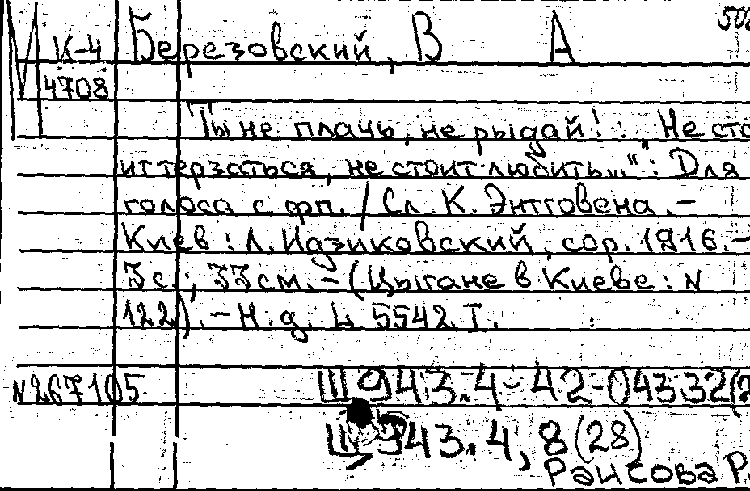 М К-4 Березовский, В А
4708
Ты не плачь, не рыдай! : "Не сто
ит терзаться, не стоит любить..." : Для
голоса с фп. / Сл. К. Энтговена. –
Киев : Л. Идзиковский, сор. 1916. –
3 с. ; 33 см. – (Цыгане в Киеве : N
122). – Н. д. L. 5542. I.
N267105 Ш943.4-42-04332(
Ш943.4,8(28)
Раисова Р.